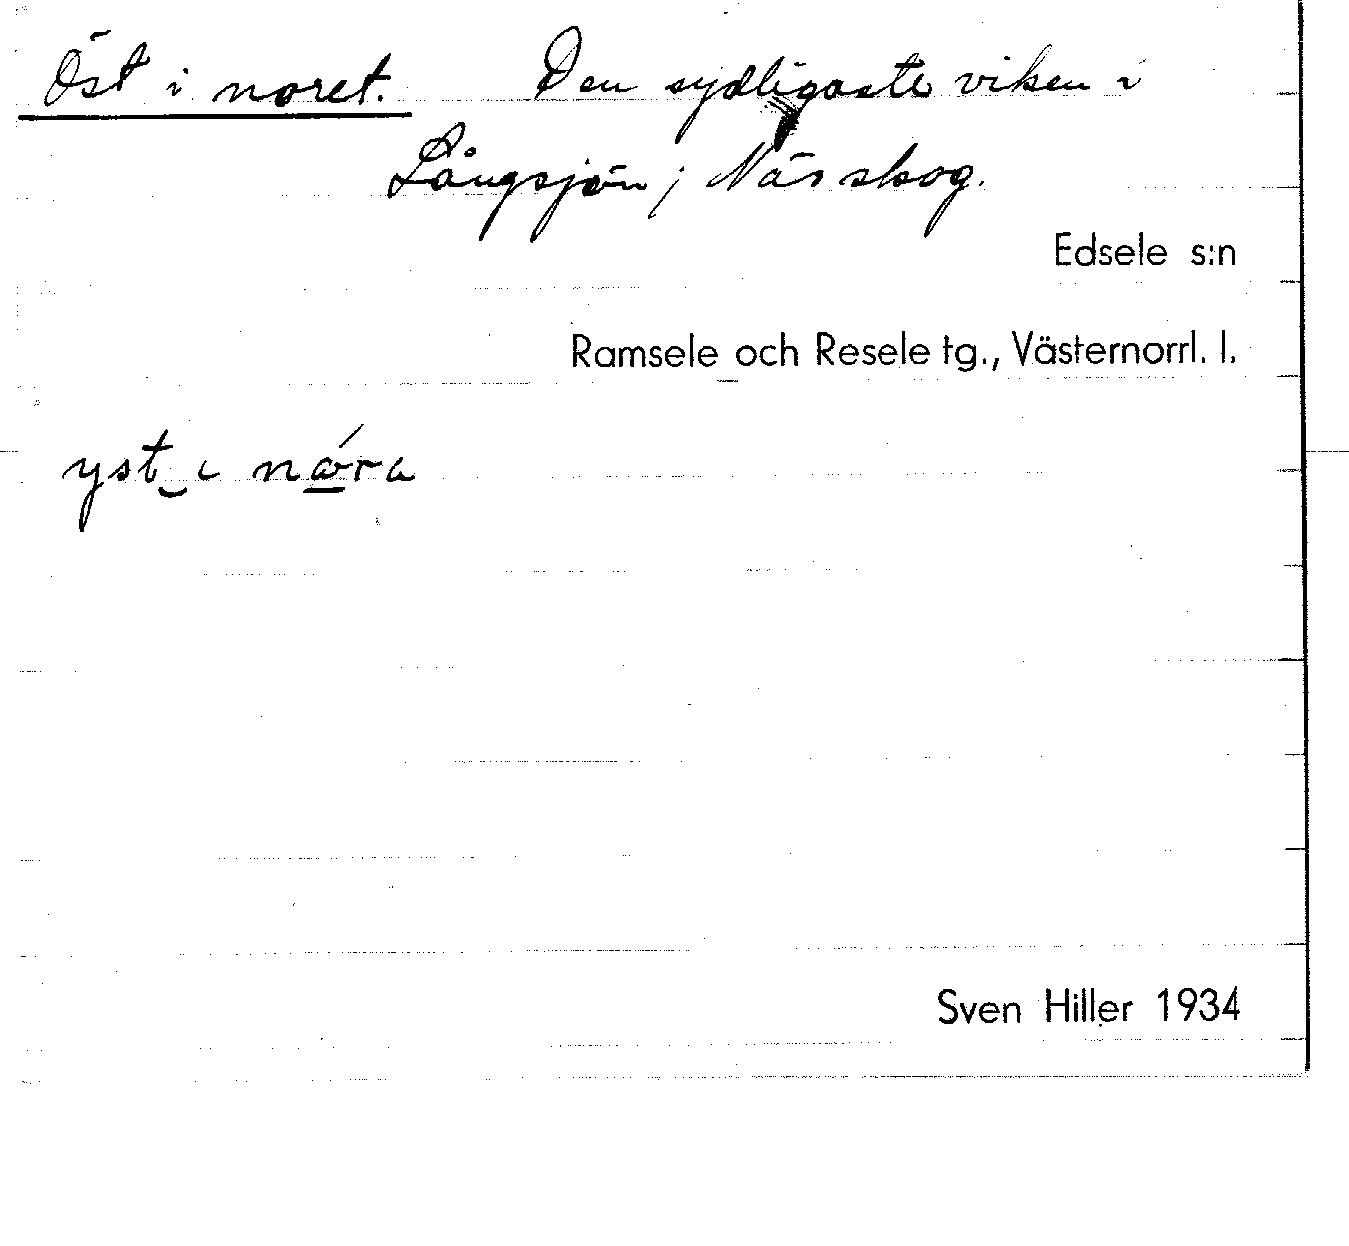 Öst i noret. Den sydligaste viken i
Långsjön; Näs skog.
Edsele s:n
Ramsele och Resele tg., Västernorrl. l.
yst‿ɩ nǿra
Sven Hiller 1934